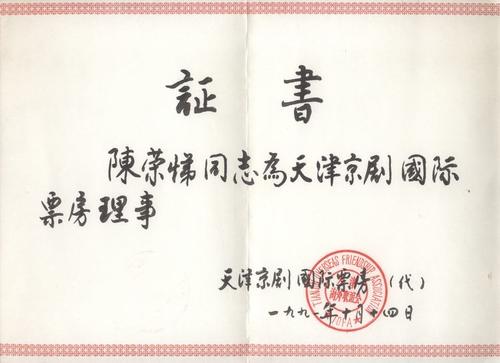 証書
陳荣悌同志為天津京剧國际
票房理事
天津京剧國际票房（代）
一九九一年十月十四日
FRIENDSHIP ASSOCIATION